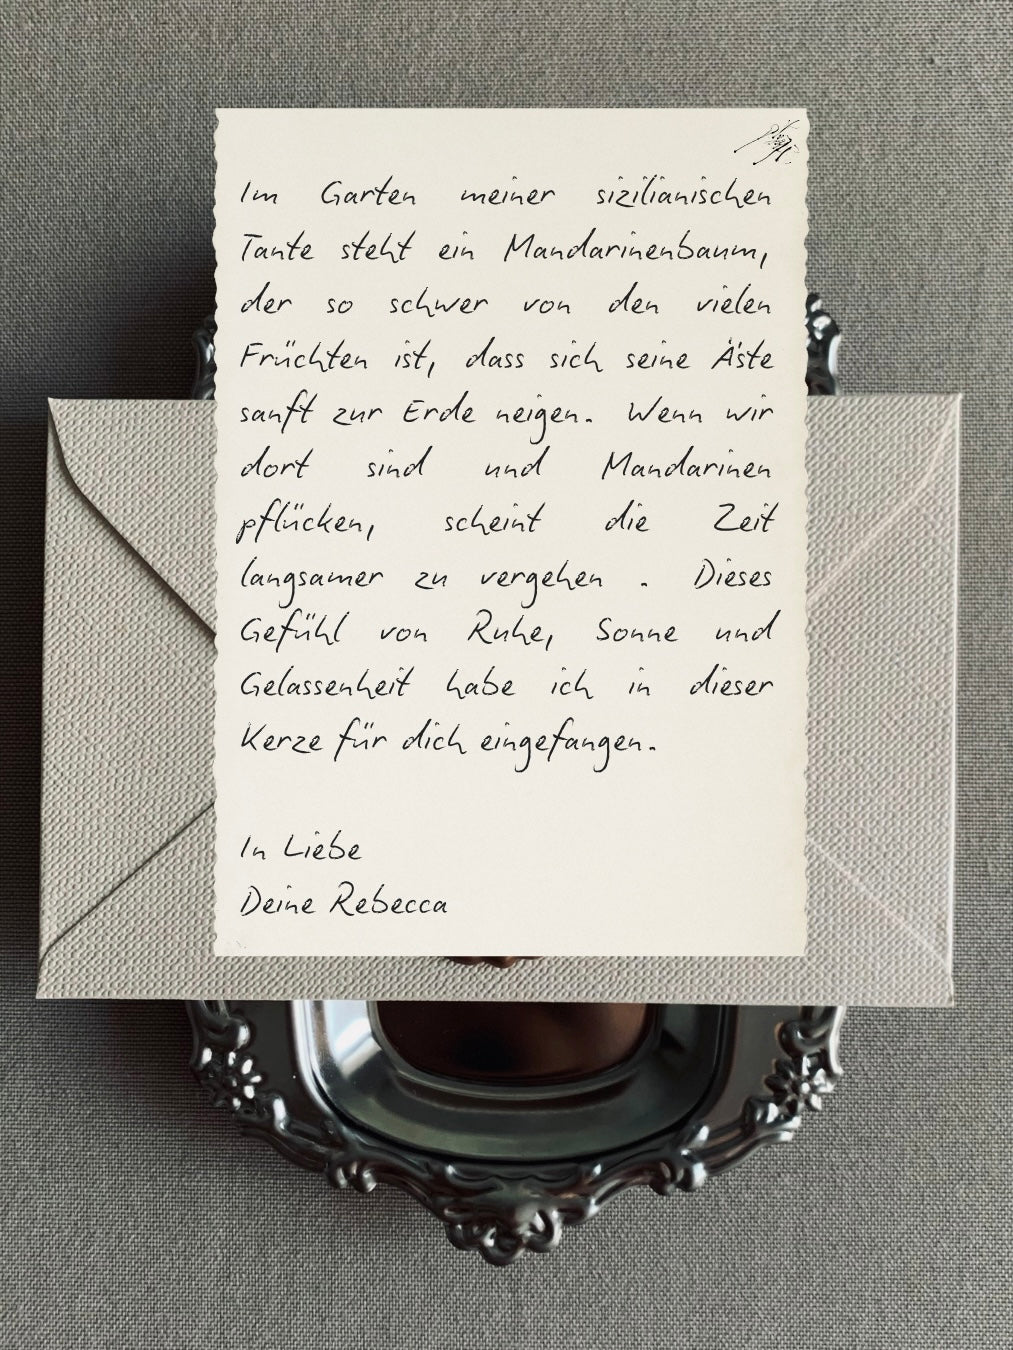 Im Garten meiner sizilianischen
Tante steht ein Mandarinenbaum,
der so schwer von den vielen
Früchten ist, dass sich seine Äste
sanft zur Erde neigen. Wenn wir
dort sind und Mandarinen
pflücken, scheint die Zeit
langsamer zu vergehen . Dieses
Gefühl von Ruhe, Sonne und
Gelassenheit habe ich in dieser
Kerze für dich eingefangen.
In Liebe
Deine Rebecca